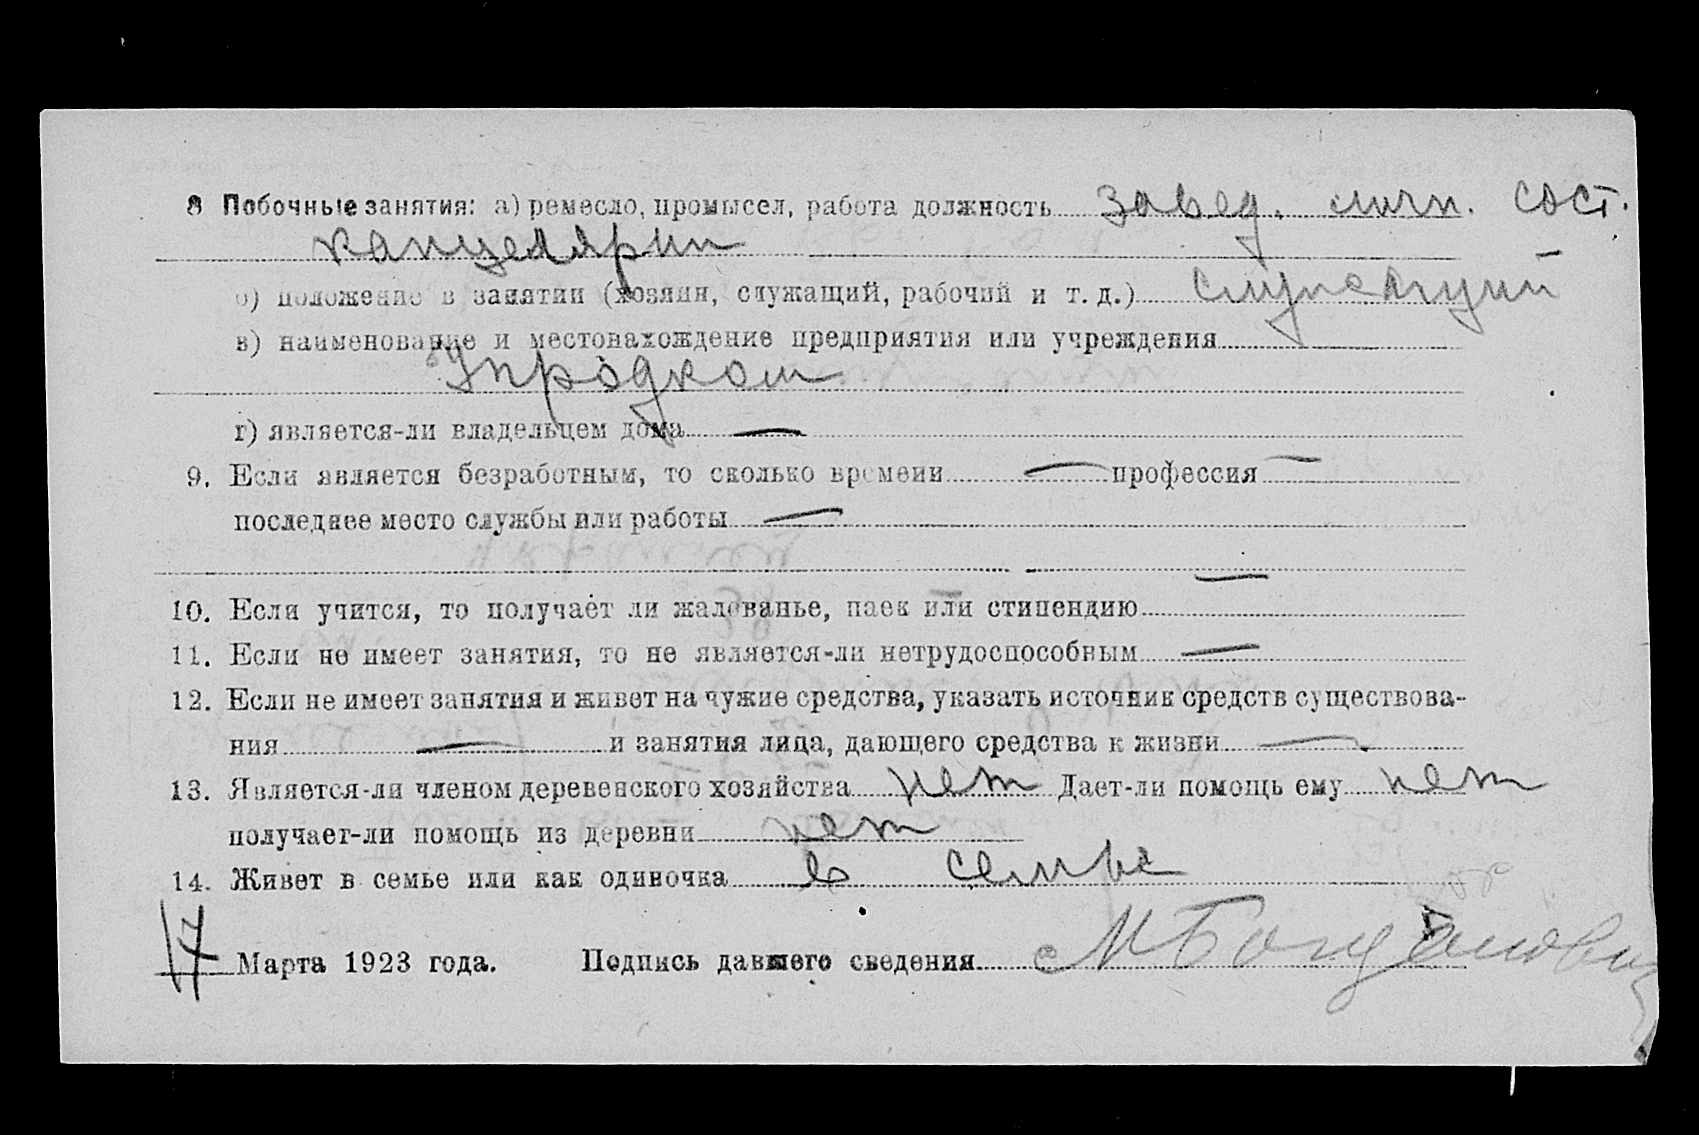 8 Побочные занятия: а) ремесло, промысел, работа должность завед. личн. сост.
канцелярии
б) положение в занятии (хозяин, служащий, рабочий и т. д.) служащий
в) наименование и местонахождение предприятия или учреждения
Упродком
г) является-ли владельцем дома —
9. Если является безработным, то сколько времени — профессия —
последнее место службы или работы —
—
10. Если учится, то получает ли жалованье, паек или стипендию
11. Если не имеет занятия, то не является-ли нетрудоспособным —
12. Если не имеет занятия и живет на чужие средства, указать источник средств существова-
ния — и занятия лица, дающего средства к жизни —
13. Является-ли членом деревенского хозяйства нет Дает-ли помощь ему нет
получает-ли помощь из деревни нет
14. Живет в семье или как одиночка в семье
17 Марта 1923 года. Подпись давшего сведения М Богданович